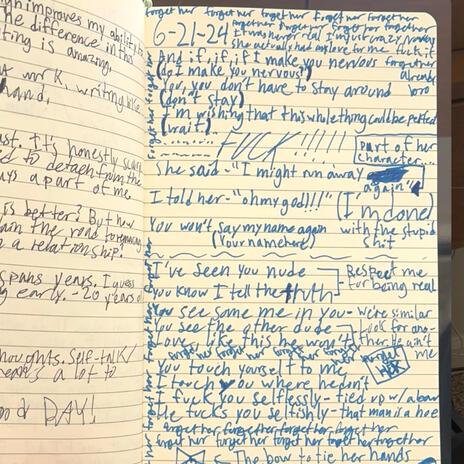 gn improves my ability to
he difference in this
iting is amazing.
at mr K. writing like
hand,
ast. It's honestly scary
ed to detach from the
ys a part of me.
is better? But how
ain the road
n a relationship?
spans years. I guess
ng early. -20 years
thoughts. Self-talk/
means a lot to
DAY!
forget her forget her forget her forget her forget her
6-21-24 forget her forget her forget her forget her
It was never real I'm just crazy
she actually had any love for me fuck it
And if, if, if I make you nervous forget her
(do I make you nervous?) already
You, you don't have to stay around bro
(don't stay)
I'm wishing that this whole thing could be petted
(wait)
FUCK!!!!!! part of her
character...
She said - "I might run away again"
I told her - "oh my god!!!" (I'm done)
You won't say my name again with the stupid
(Your name here) shit
I've seen you nude Respect me
You know I tell the truth for being real
You see some me in you - we're similar
You see the other dude - look for ano-
Love like this he won't ther he ain't
forget her forget her forget her forget her me
forget HER
You touch yourself to me
I touch you where he don't
I fuck you selflessly - tied up w/ a bow
He fucks you selfishly - that man is a hoe
forget her forget her forget her forget her
forget her forget her forget her forget her together
The bow to tie her hands